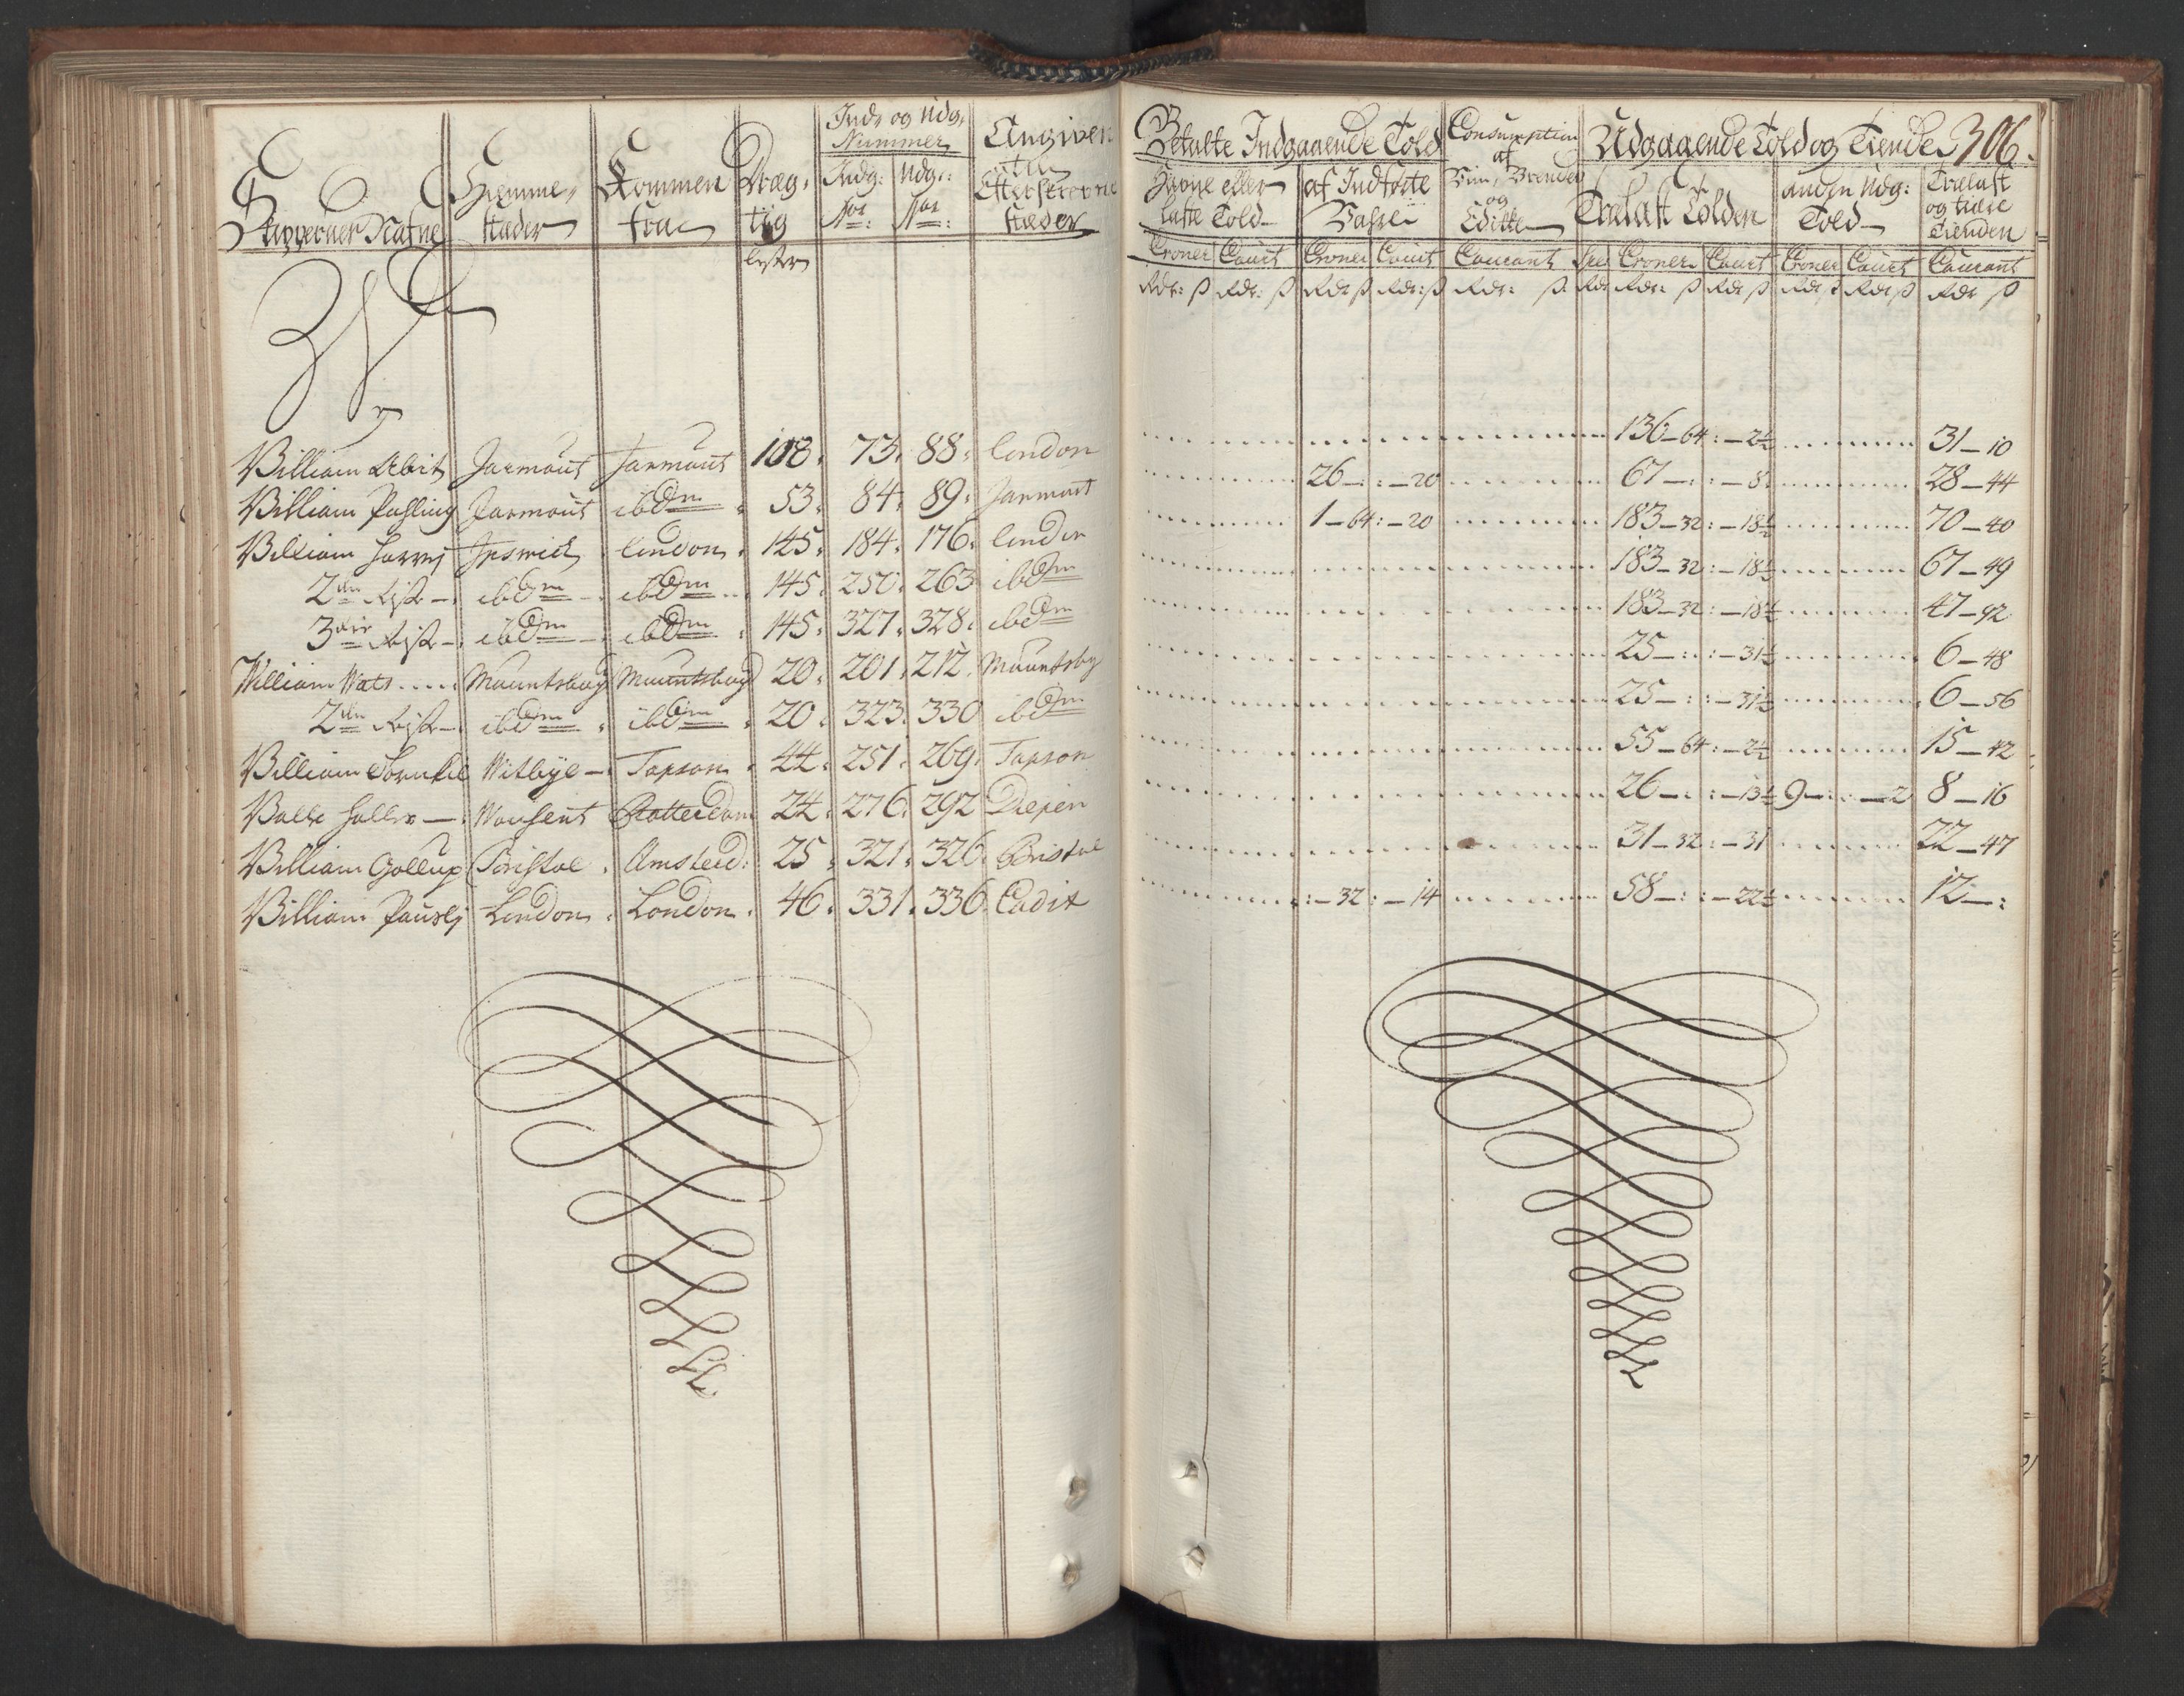 Skippernes Nafne | Hiemme-stæder | Kommen fra | Dræg-tig | Ind- og Udg: Nummer | Angiven til Efterskrevne stæder
Indg: No: | Udg: No:
Lester
W
William Abit | Jarmout | Jarmout | 108. | 73. | 88. | London
William Pasling | Jarmout | ibdm | 53. | 84. | 89. | Jarmout
William Harris | Jpswich | London | 145. | 184. | 176. | London
2den Rejse | ibdm | ibdm | 145. | 250. | 263 | ibdm
3die Rejse | ibdm | ibdm | 145. | 327. | 328. | ibdm
William Wats | Mauntsbay | Mauntsbay | 20. | 201. | 212. | Mauntsby
2den Rejse | ibdm | ibdm | 20. | 323. | 330 | ibdm
William | Witbye | Tapson | 44. | 251. | 269. | Tapson
Rotterdam | 24. | 276. | 292 | Diepen
William Gollup | Bristol | Amsterd: | 25. | 321. | 326. | Bristol
William | London | London | 46. | 331. | 336. | Cadix
Betalte Indgaaende Told | Consumption af Viin, Brendev og Edikke | Udgaaende Told og Tiende | 306.
eller Laste Told | af Indførte Vahre | Trælast Tolden | anden Udg: Told | Trælast og Tiære Tienden
Croner | Court | Croner | Court | Courant | Spec | Croner | Court | Croner | Court | Courant
Rdr: ß | Rdr: ß | Rdr ß | Rdr: ß | Rdr: ß | Rdr | Rdr: ß | Rdr ß | Rdr ß | Rdr ß | Rdr ß
136-64 | :-2½ | 31-10
26-: | :-20 | 67-: | :-8 | 28-44
1-64 | :-20 | 183-32 | :-18½ | 70-40
183-32 | :-18½ | 67-49
183-32 | :-18½ | 47-92
25-: | :-31½ | 6-48
25-: | :-31½ | 6-56
55-64 | :-2½ | 15-42
26-: | :-13½ | 9-: | :-2 | 8-16
31-32 | :-31 | 22-47
:-32 | :-14 | 58-: | :-22½ | 12-: